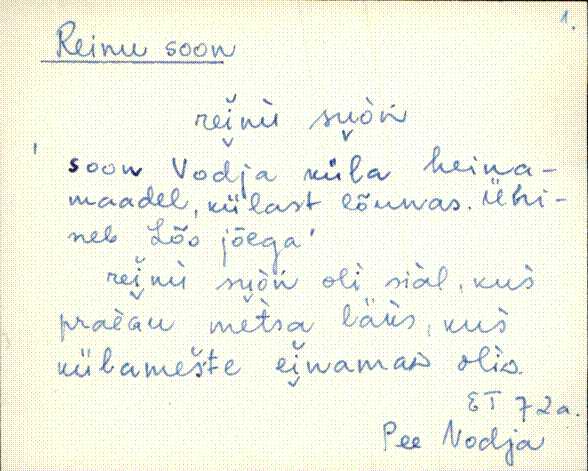 1.
Reinu soon
rei̯nù su̯òǹ
' soon Vodja küla heina-
maadel, külast lõunas. Ühi-
neb Lõo jõega'
rei̯nù su̯òǹ oli siàl, kus̀
praèGu mètsa lä̀üs, kus̀
külamešte ei̯namaD oliD.
ET 72a.
Pee Vodja